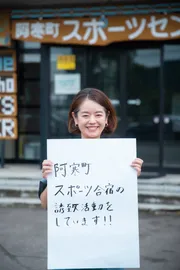 阿寒町
スポーツセン
阿寒町
スポーツ合宿の
誘致活動を
しています!!